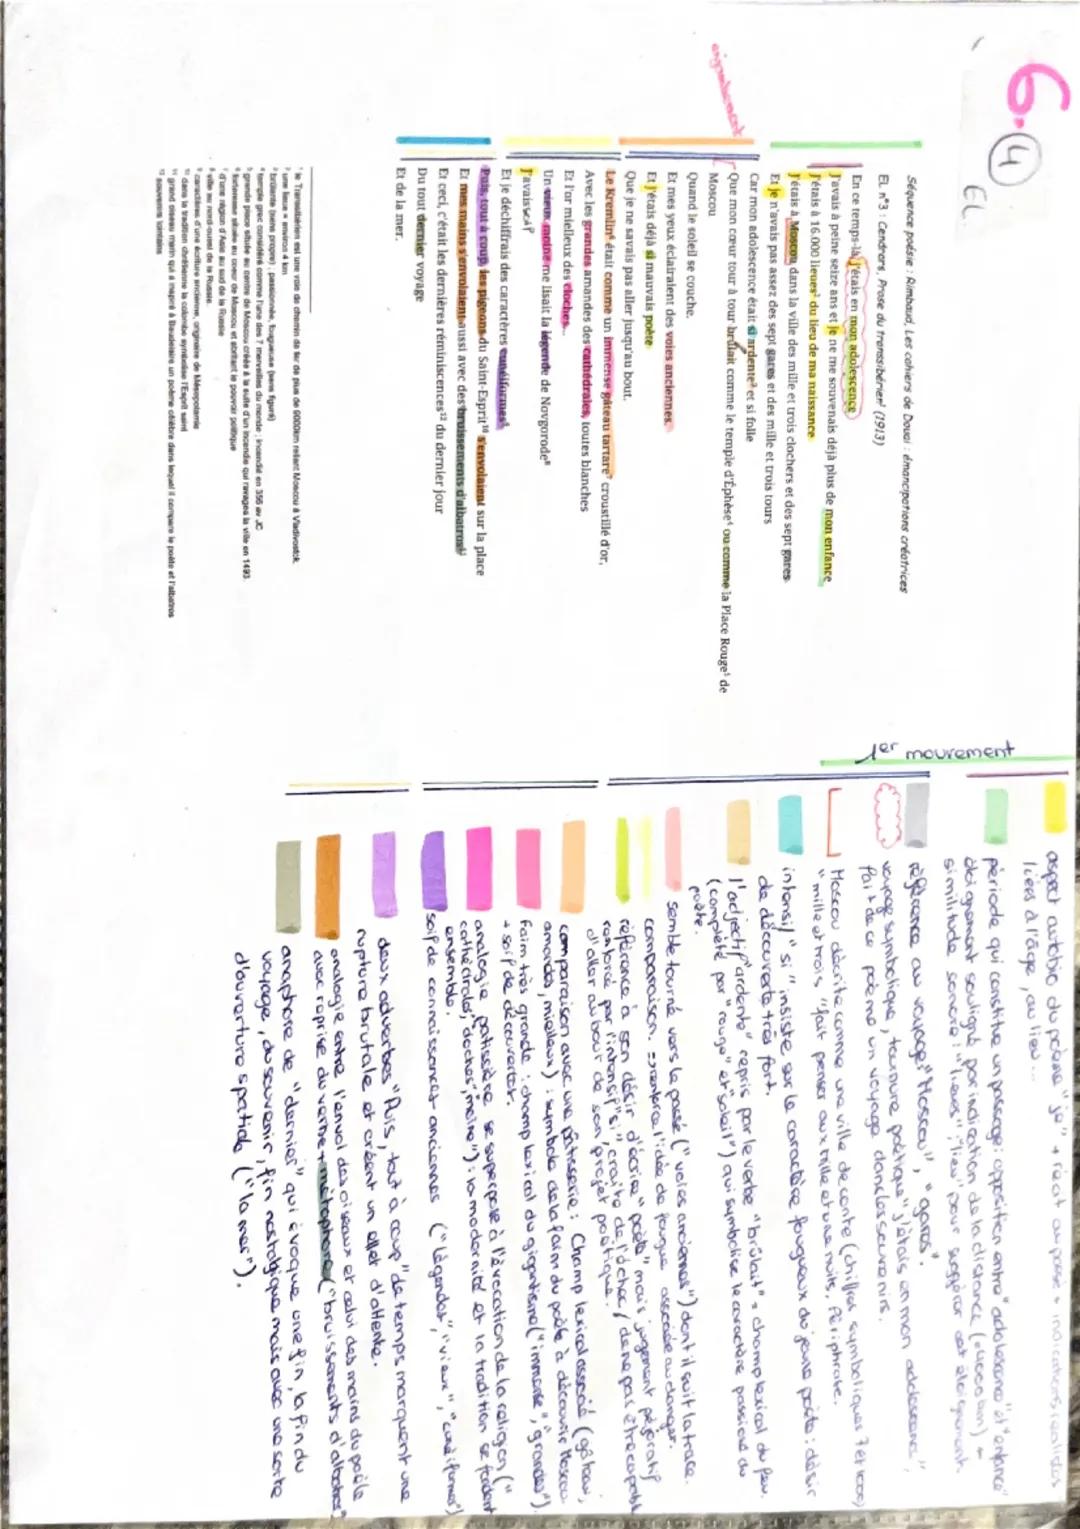 6.④
EL
Séquence poésie : Rimbaud, Les cahiers de Douai : émancipations créatrices
EL n°3 : Cendrars, Prose du transsibérien¹ (1913)
En ce temps-là j'étais en mon adolescence
J'avais à peine seize ans et je ne me souvenais déjà plus de mon enfance
J'étais à 16.000 lieues² du lieu de ma naissance
J'étais à Moscou, dans la ville des mille et trois clochers et des sept gares
Et je n'avais pas assez des sept gares et des mille et trois tours
Car mon adolescence était si ardente³ et si folle
enjambement
Que mon cœur tour à tour brûlait comme le temple d'Éphèse⁴ ou comme la Place Rouge⁵ de
Moscou
Quand le soleil se couche.
Et mes yeux éclairaient des voies anciennes.
Et j'étais déjà si mauvais poète
Que je ne savais pas aller jusqu'au bout.
Le Kremlin⁶ était comme un immense gâteau tartare⁷ croustillé d'or,
Avec les grandes amandes des cathédrales, toutes blanches
Et l'or mielleux des cloches...
Un vieux moine me lisait la légende de Novgorode⁸
J'avais soif
Et je déchiffrais des caractères cunéiformes⁹
Puis, tout à coup, les pigeons du Saint-Esprit¹⁰ s'envolaient sur la place
Et mes mains s'envolaient aussi avec des bruissements d'albatros¹¹
Et ceci, c'était les dernières réminiscences¹² du dernier jour
Du tout dernier voyage
Et de la mer.
¹ le Transsibérien est une voie de chemin de fer de plus de 9000km reliant Moscou à Vladivostok
² une lieue = environ 4 km
³ brûlante (sens propre) ; passionnée, fougueuse (sens figuré)
⁴ temple grec considéré comme l'une des 7 merveilles du monde ; incendié en 356 av JC
⁵ grande place située au centre de Moscou créée à la suite d'un incendie qui ravagea la ville en 1493
⁶ forteresse située au coeur de Moscou et abritant le pouvoir politique
⁷ d'une région d'Asie au sud de la Russie
⁸ ville au nord-ouest de la Russie
⁹ caractères d'une écriture ancienne, originaire de Mésopotamie
¹⁰ dans la tradition chrétienne la colombe symbolise l'Esprit saint
¹¹ grand oiseau marin qui a inspiré à Baudelaire un poème célèbre dans lequel il compare le poète et l'albatros
¹² souvenirs lointains
1er mouvement
aspect autobio du poème "je" + récit au passé + indicateurs réalistes
liées à l'âge, au lieu...
période qui constitue un passage : opposition entre "adolescence" et "enfance"
éloignement souligné par indication de la distance +
similitude sonore : "lieues", "lieu" pour suggérer cet éloignement.
référence au voyage "Moscou", "gares".
voyage symbolique, tournure poétique "j'étais en mon adolescence",
fait de ce poème un voyage dans les souvenirs.
Moscou décrite comme une ville de conte (chiffres symboliques 7 et 1000)
"mille et trois" fait penser aux mille et une nuits, périphrase.
intensif "si" insiste sur le caractère fougueux du jeune poète : désir
de découverte très fort.
l'adjectif "ardente" repris par le verbe "brûlait" = champ lexical du feu.
(complété par "rouge" et "soleil") qui symbolise le caractère passioné du
poète.
semble tourné vers le passé ("voies anciennes") dont il suit la trace.
comparaison. => renforce l'idée de fougue associée au danger.
référence à son désir d'écrire "poète" mais jugement péjoratif
renforcé par l'intensif "si", crainte de l'échec, de ne pas être capable
d'aller au bout de son projet poétique.
comparaison avec une pâtisserie : Champ lexical associé (gâteau,
amandes, mielleux) : symbole de la faim du poète à découvrir Moscou
Faim très grande : champ lexical du gigantisme ("immense", "grandes")
+ soif de découverte.
analogie patissière se superpose à l'évocation de la religion ("
cathédrales", cloches", moine") : la modernité et la tradition se fondent
ensemble.
soif de connaissances anciennes ("légendes", "vieux", "cunéiformes")
deux adverbes "Puis, tout à coup" de temps marquent une
rupture brutale et créent un effet d'attente.
analogie entre l'envol des oiseaux et celui des mains du poète
avec reprise du verbe + métaphore ("bruissements d'albatros"
anaphore de "dernier" qui évoque une fin, la fin du
voyage, du souvenir, fin nostalgique mais avec une sorte
d'ouverture spatiale ("la mer").